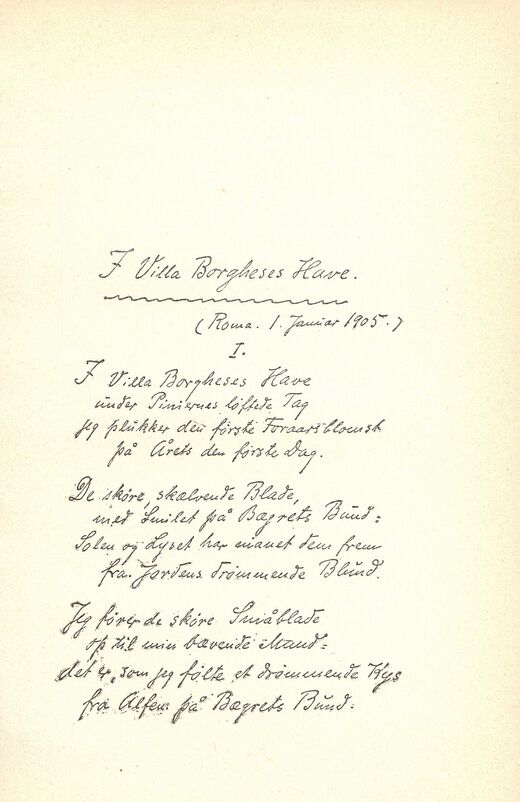 I Villa Borgheses Have.
(Roma. 1. Januar 1905.)
I.
I Villa Borgheses Have
under Piniernes løftede Tag
jeg plukker den første Foraarsblomst
på Årets den første Dag.
De skøre, skælvende Blade,
med Smilet på Bægrets Bund:
Solen og Lyset har manet dem frem
fra Jordens drømmende Blund.
Jeg fører de skøre Småblade
op til min bævende Mund:
det er, som jeg følte et drømmende Kys
fra Alfen på Bægrets Bund.